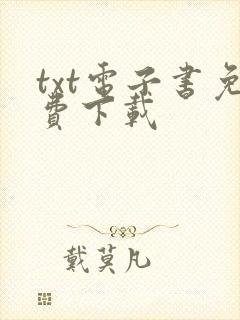 txt電子書免
費下載
戴莫凡